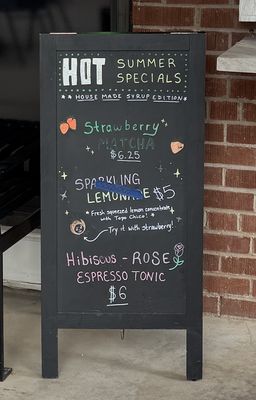 HOT SUMMER
SPECIALS
** HOUSE MADE SYRUP EDITION **
Strawberry
MATCHA
$6.25
SPARKLING
LEMONADE $5
*Fresh squeezed lemon concentrate
with Topo Chico!*
Try it with strawberry!
Hibiscus - ROSE
ESPRESSO TONIC
$6